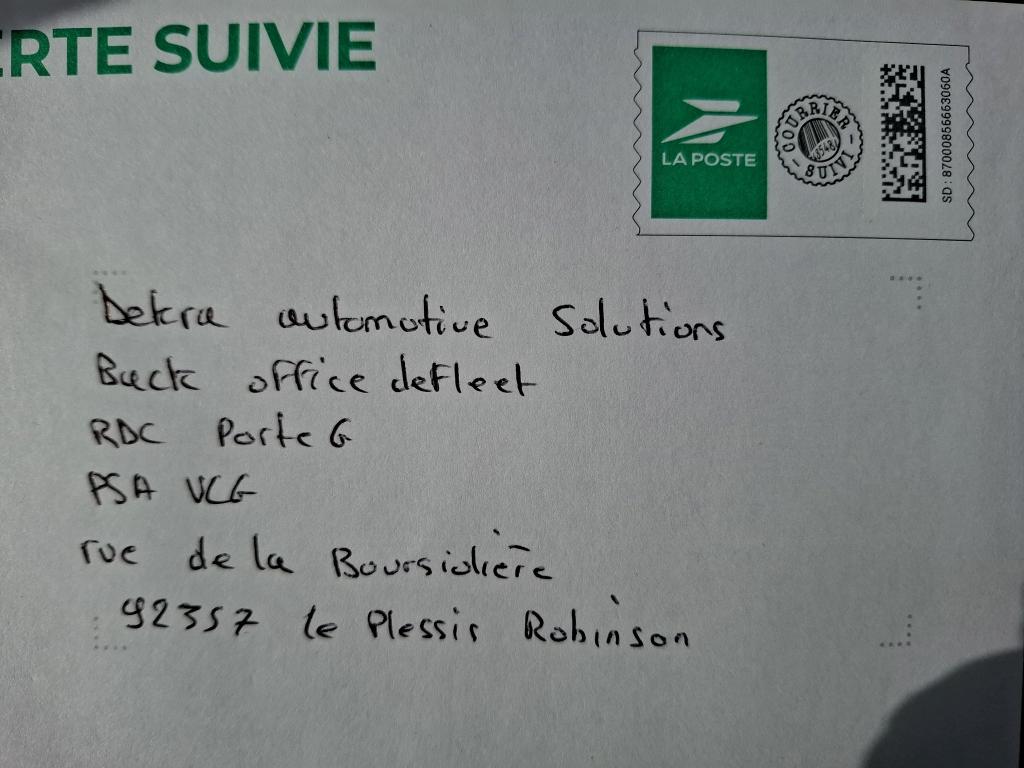 ERTE SUIVIE
LA POSTE
COURRIER SUIVI
SD : 87000856663060A
Dekra automotive Solutions
Back office defleet
RDC Porte G
PSA VCG
rue de la Boursidière
92357 le Plessis Robinson